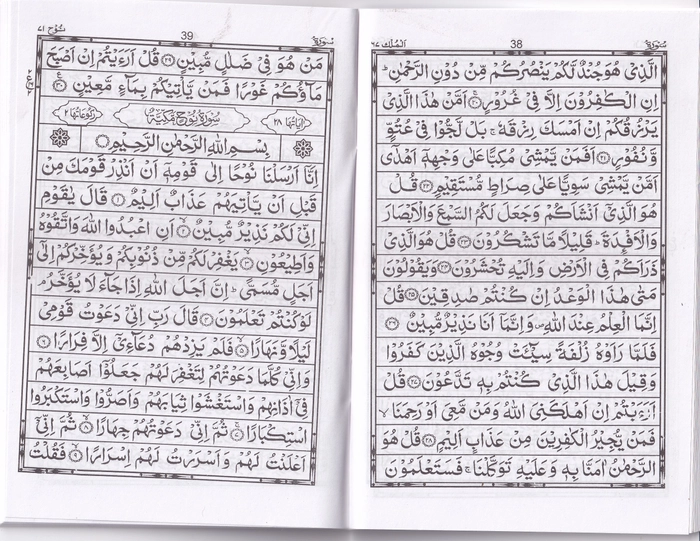 سورة
38
الملك ٦٧
الَّذِىْ هُوَ جُنْدٌ لَّكُمْ يَنْصُرُكُمْ مِّنْ دُوْنِ الرَّحْمٰنِ ؕ
اِنِ الْكٰفِرُوْنَ اِلَّا فِىْ غُرُوْرٍ ۚ ﴿۲۰﴾ اَمَّنْ هٰذَا الَّذِىْ
يَرْزُقُكُمْ اِنْ اَمْسَكَ رِزْقَهٗ ۚ بَلْ لَّجُّوْا فِىْ عُتُوٍّ
وَّنُفُوْرٍ ﴿۲۱﴾ اَفَمَنْ يَّمْشِىْ مُكِبًّا عَلٰى وَجْهِهٖۤ اَهْدٰٓى
اَمَّنْ يَّمْشِىْ سَوِيًّا عَلٰى صِرَاطٍ مُّسْتَقِيْمٍ ﴿۲۲﴾ قُلْ
هُوَ الَّذِىْۤ اَنْشَاَكُمْ وَجَعَلَ لَكُمُ السَّمْعَ وَالْاَبْصَارَ
وَالْاَفْـِٕدَةَ ؕ قَلِيْلًا مَّا تَشْكُرُوْنَ ﴿۲۳﴾ قُلْ هُوَ الَّذِىْ
ذَرَاَكُمْ فِى الْاَرْضِ وَاِلَيْهِ تُحْشَرُوْنَ ﴿۲۴﴾ وَيَقُوْلُوْنَ
مَتٰى هٰذَا الْوَعْدُ اِنْ كُنْتُمْ صٰدِقِيْنَ ﴿۲۵﴾ قُلْ
اِنَّمَا الْعِلْمُ عِنْدَ اللّٰهِ ۪ وَاِنَّمَاۤ اَنَا نَذِيْرٌ مُّبِيْنٌ ﴿۲۶﴾
فَلَمَّا رَاَوْهُ زُلْفَةً سِيْٓـَٔتْ وُجُوْهُ الَّذِيْنَ كَفَرُوْا
وَقِيْلَ هٰذَا الَّذِىْ كُنْتُمْ بِهٖ تَدَّعُوْنَ ﴿۲۷﴾ قُلْ
اَرَءَيْتُمْ اِنْ اَهْلَكَنِىَ اللّٰهُ وَمَنْ مَّعِىَ اَوْ رَحِمَنَا ۙ
فَمَنْ يُّجِيْرُ الْكٰفِرِيْنَ مِنْ عَذَابٍ اَلِيْمٍ ﴿۲۸﴾ قُلْ هُوَ
الرَّحْمٰنُ اٰمَنَّا بِهٖ وَعَلَيْهِ تَوَكَّلْنَا ۚ فَسَتَعْلَمُوْنَ
سورة
39
نوح ٧١
مَنْ هُوَ فِىْ ضَلٰلٍ مُّبِيْنٍ ﴿۲۹﴾ قُلْ اَرَءَيْتُمْ اِنْ اَصْبَحَ
مَآؤُكُمْ غَوْرًا فَمَنْ يَّاْتِيْكُمْ بِمَآءٍ مَّعِيْنٍ ﴿۳۰﴾
اٰيَاتُهَا ٢٨
سُوْرَةُ نُوْحٍ مَّكِّيَّةٌ
رُكُوْعَاتُهَا ٢
بِسْمِ اللّٰهِ الرَّحْمٰنِ الرَّحِيْمِ
اِنَّاۤ اَرْسَلْنَا نُوْحًا اِلٰى قَوْمِهٖۤ اَنْ اَنْذِرْ قَوْمَكَ مِنْ
قَبْلِ اَنْ يَّاْتِيَهُمْ عَذَابٌ اَلِيْمٌ ﴿۱﴾ قَالَ يٰقَوْمِ
اِنِّىْ لَكُمْ نَذِيْرٌ مُّبِيْنٌ ﴿۲﴾ اَنِ اعْبُدُوا اللّٰهَ وَاتَّقُوْهُ
وَاَطِيْعُوْنِ ﴿۳﴾ يَغْفِرْ لَكُمْ مِّنْ ذُنُوْبِكُمْ وَيُؤَخِّرْكُمْ اِلٰٓى
اَجَلٍ مُّسَمًّى ؕ اِنَّ اَجَلَ اللّٰهِ اِذَا جَآءَ لَا يُؤَخَّرُ ۘ
لَوْ كُنْتُمْ تَعْلَمُوْنَ ﴿۴﴾ قَالَ رَبِّ اِنِّىْ دَعَوْتُ قَوْمِىْ
لَيْلًا وَّنَهَارًا ﴿۵﴾ فَلَمْ يَزِدْهُمْ دُعَآءِىْۤ اِلَّا فِرَارًا ﴿۶﴾
وَاِنِّىْ كُلَّمَا دَعَوْتُهُمْ لِتَغْفِرَ لَهُمْ جَعَلُوْۤا اَصَابِعَهُمْ
فِىْۤ اٰذَانِهِمْ وَاسْتَغْشَوْا ثِيَابَهُمْ وَاَصَرُّوْا وَاسْتَكْبَرُوا
اسْتِكْبَارًا ﴿۷﴾ ثُمَّ اِنِّىْ دَعَوْتُهُمْ جِهَارًا ﴿۸﴾ ثُمَّ اِنِّىْۤ
اَعْلَنْتُ لَهُمْ وَاَسْرَرْتُ لَهُمْ اِسْرَارًا ﴿۹﴾ فَقُلْتُ